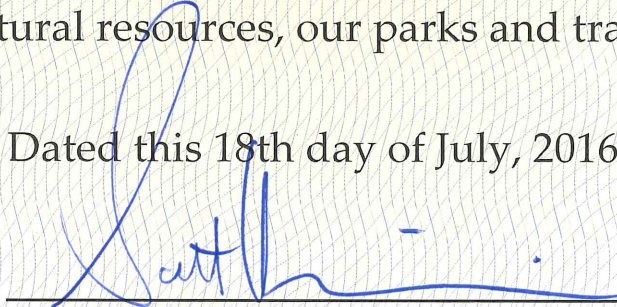 tural resources, our parks and tra
Dated this 18th day of July, 2016